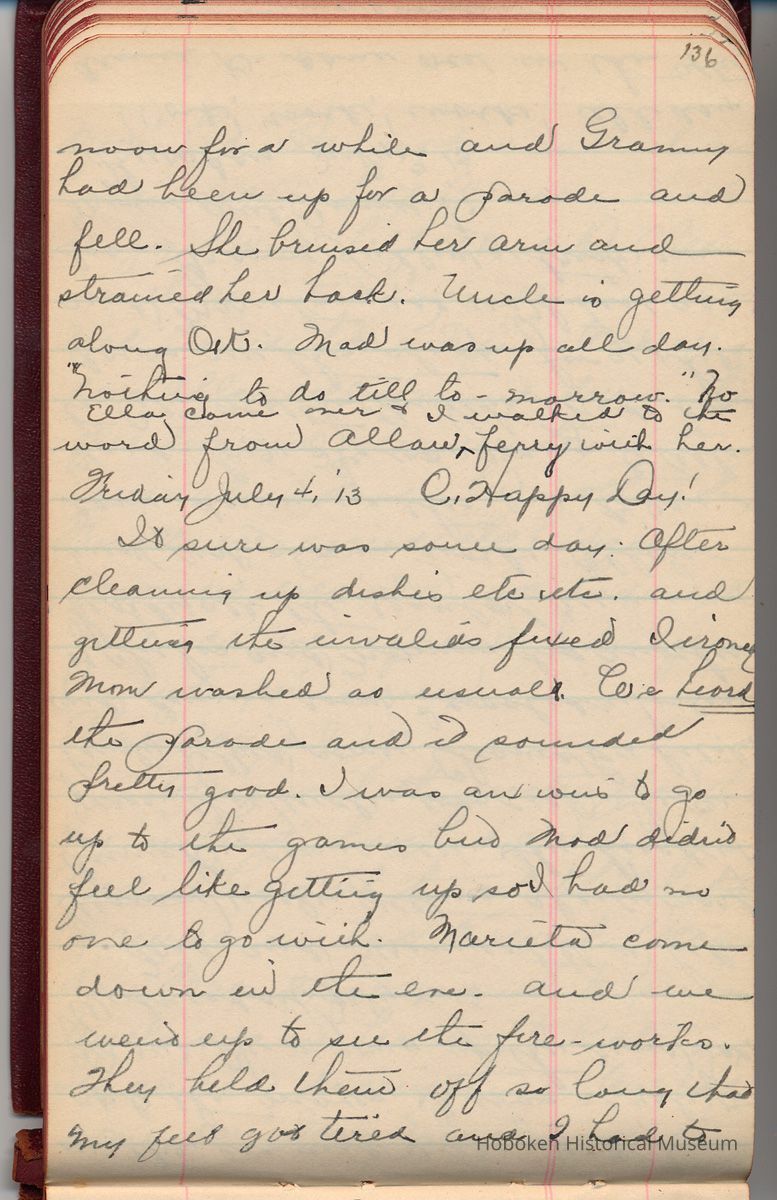 136
noon for a while and Granny
had been up for a parade and
fell. She bruised her arm and
strained her back. Uncle is getting
along O.K. Mad was up all day.
"Nothing to do till to-morrow." No
Ella came over & I walked to the
word from Allan, ferry with her.
Friday July 4, '13 O, Happy Day!
It sure was some day. After
cleaning up dishes etc etc. and
getting the invalids fixed I ironed
Mom washed as usual. We heard
the parade and it sounded
pretty good. I was anxious to go
up to the games but Mad didn't
feel like getting up so I had no
one to go with. Marieta come
down in the eve. and we
went up to see the fire-works.
They held them off so long that
my feet got tired and I had to
Hoboken Historical Museum